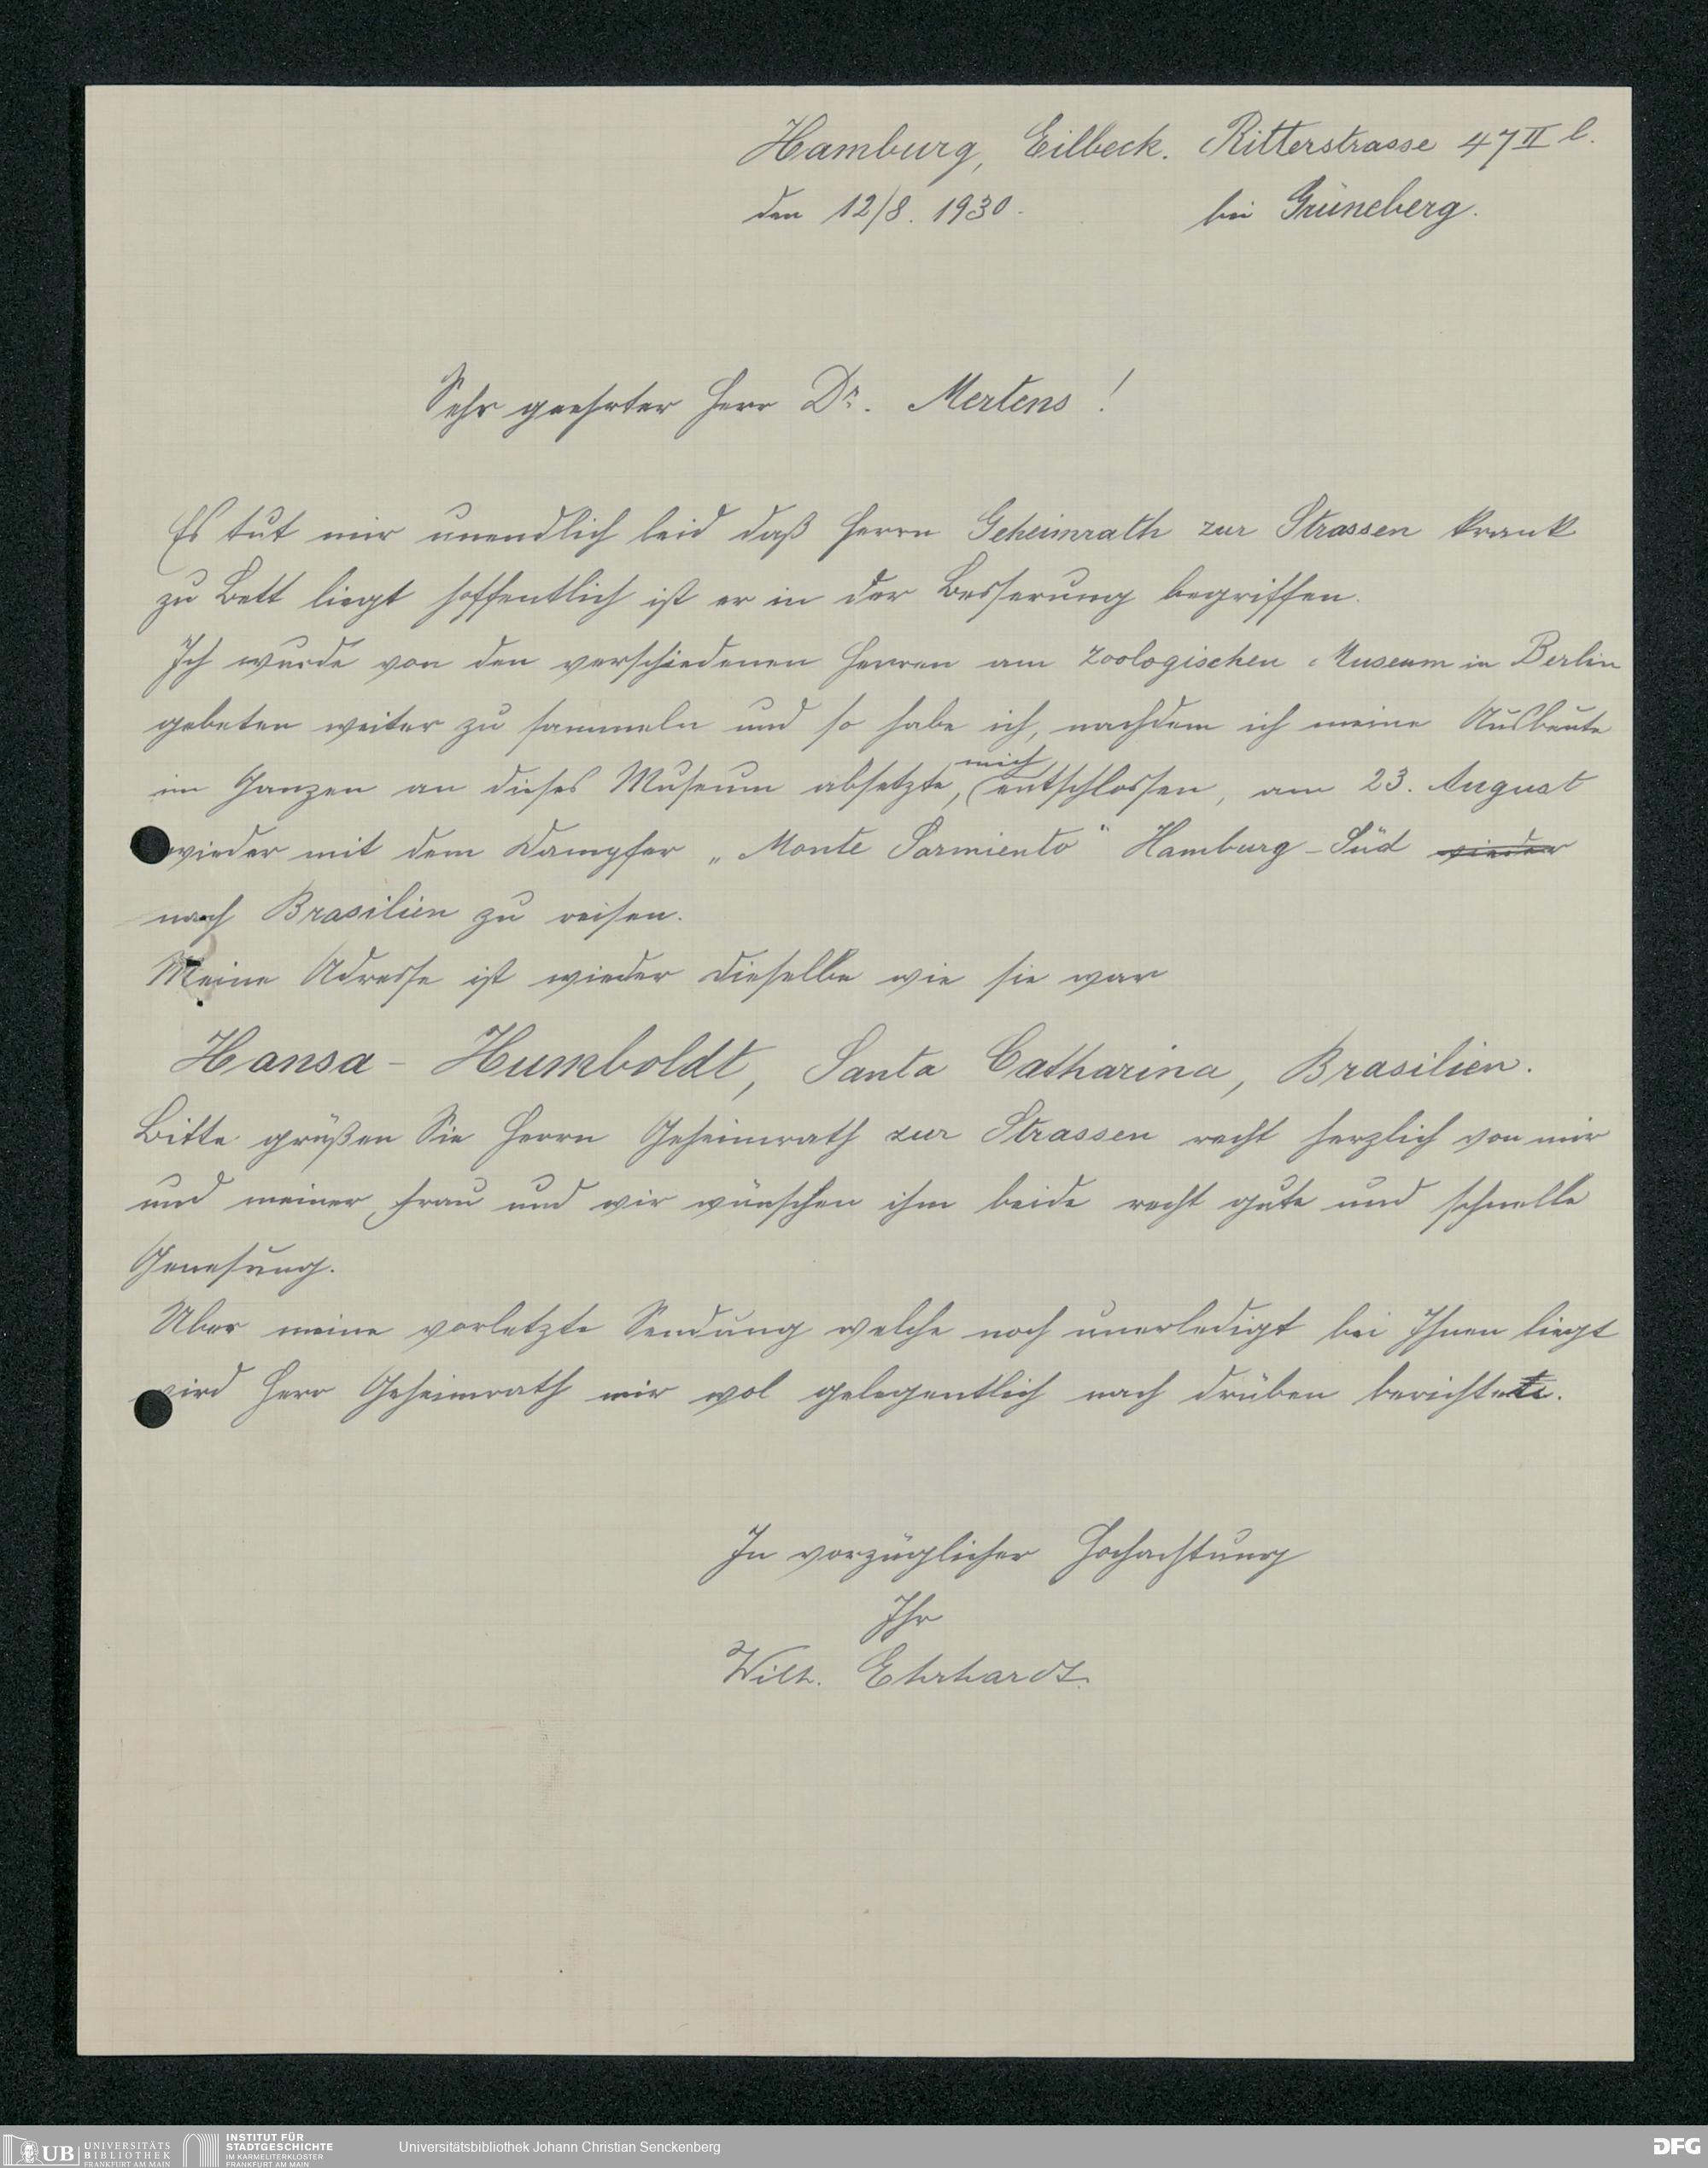 Hamburg, Eilbeck. Ritterstrasse 47 II l.
den 12/8. 1930. bei Grüneberg.
Sehr geehrter Herr Dr. Mertens!
Es tut mir unendlich leid daß Herrn Geheimrath zur Strassen krank
zu Bett liegt hoffentlich ist er in der Besserung begriffen.
Ich wurde von den verschiedenen Herren am Zoologischen Museum in Berlin
gebeten weiter zu sammeln und so habe ich, nachdem ich meine Ausbeute
mich
im Ganzen an dieses Museum absetzte, entschlossen, am 23. August
wieder mit dem Dampfer „Monte Sarmiento" Hamburg-Süd wieder
nach Brasilien zu reisen.
Meine Adresse ist wieder dieselbe wie sie war
Hansa-Humboldt, Santa Catharina, Brasilien.
Bitte grüßen Sie Herrn Geheimrath zur Strassen recht herzlich von mir
und meiner Frau und wir wünschen ihm beide recht gute und schnelle
Genesung.
Über meine vorletzte Sendung welche noch unerledigt bei Ihnen liegt
wird Herr Geheimrath mir wol gelegentlich nach drüben berichten.
In vorzüglicher Hochachtung
Ihr
Wilh. Ehrhardt.
UB UNIVERSITÄTS
BIBLIOTHEK
FRANKFURT AM MAIN
INSTITUT FÜR
STADTGESCHICHTE
IM KARMELITERKLOSTER
FRANKFURT AM MAIN
Universitätsbibliothek Johann Christian Senckenberg
DFG